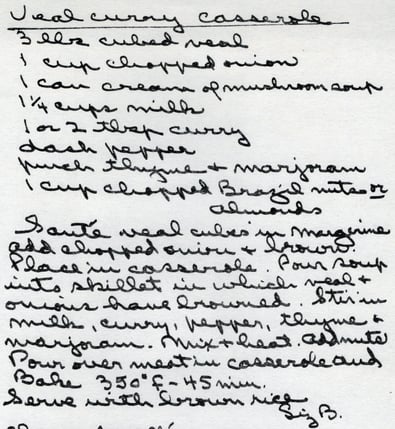 Veal curry casserole
3 lbs cubed veal
1 cup chopped onion
1 can cream of mushroom soup
1 1/4 cups milk
1 or 2 tbsp curry
dash pepper
pinch thyme + marjoram
1 cup chopped Brazil nuts or
almonds
Sauté veal cubes in margerine
add chopped onion & brown.
Place in casserole. Pour soup
into skillet in which veal +
onions have browned. Stir in
milk, curry, pepper, thyme +
marjoram. Mix + heat. Add nuts
Pour over meat in casserole and
Bake 350°F - 45 min.
Serve with brown rice
Liz B.